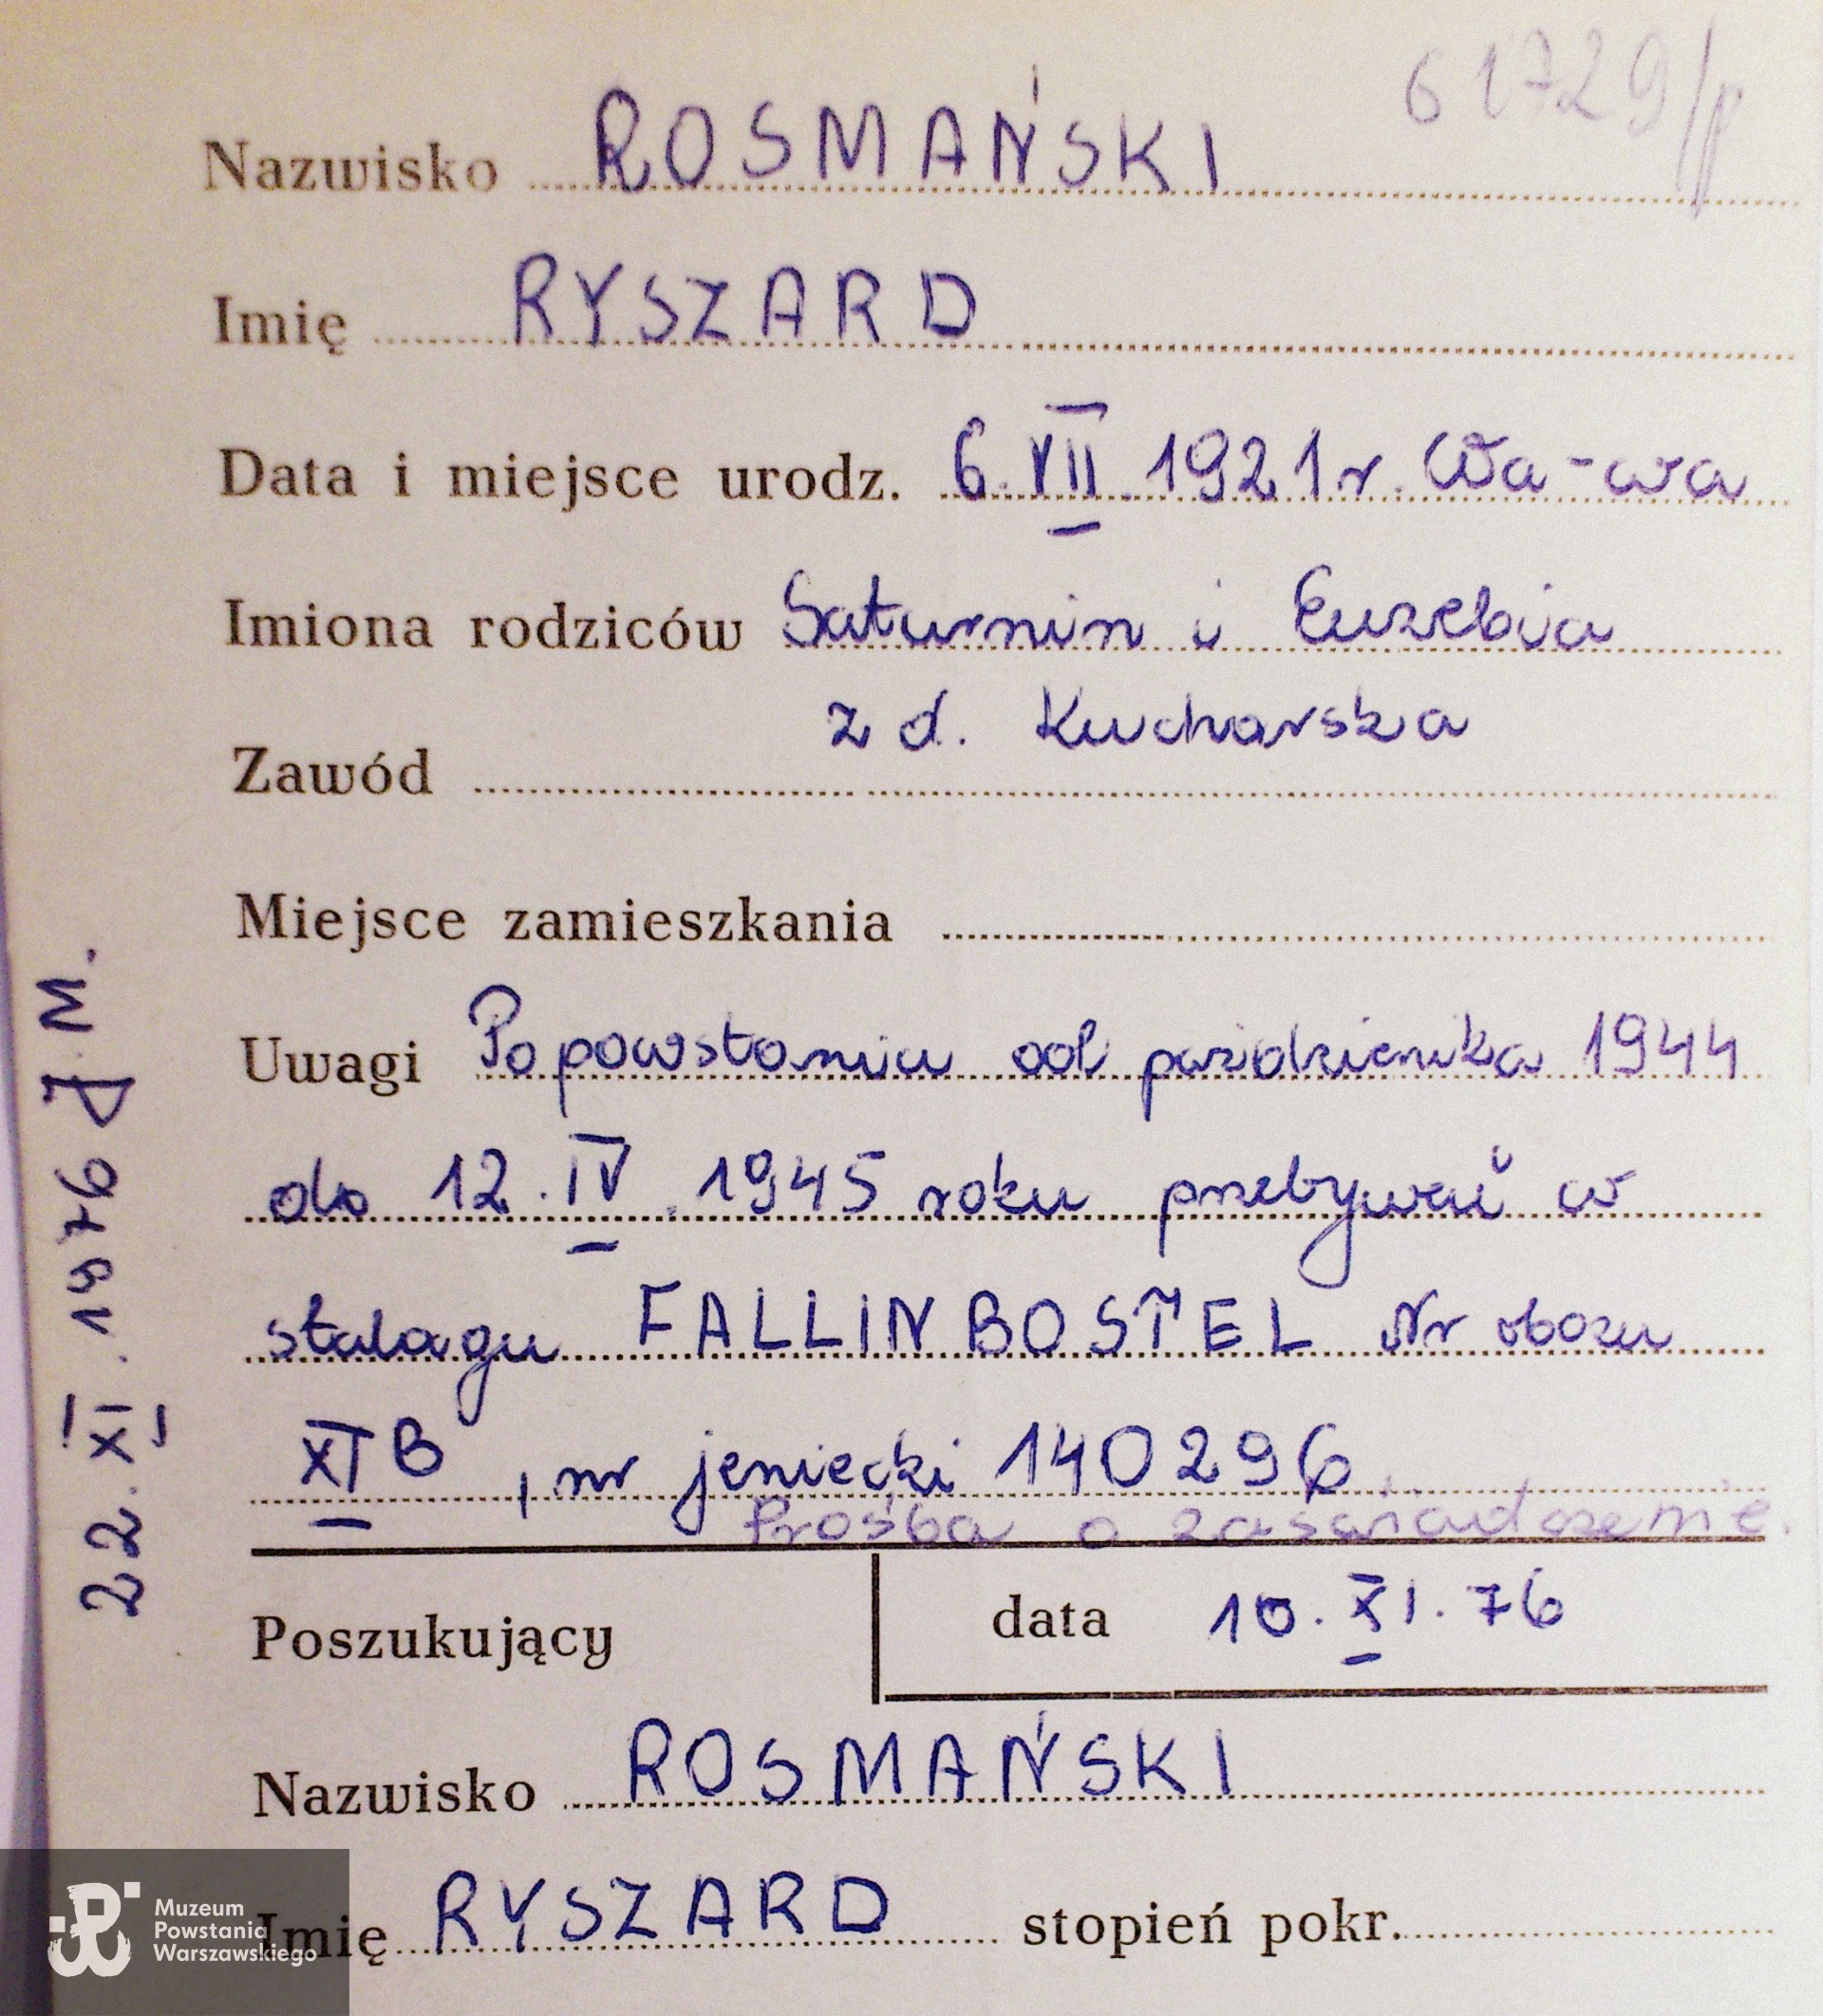 61729/p
Nazwisko ROSMAŃSKI
Imię RYSZARD
Data i miejsce urodz. 6.VII.1921r. Wa-wa
Imiona rodziców Saturnin i Euzebia
z d. Kucharska
Zawód
Miejsce zamieszkania
Uwagi Po powstaniu od października 1944
do 12.IV.1945 roku przebywał w
stalagu FALLINBOSTEL Nr obozu
XI B, nr jeniecki 140296
Prośba o zaświadczenie.
Poszukujący data 10.XI.76
Nazwisko ROSMAŃSKI
Imię RYSZARD stopień pokr.
22.XI.1976 J.M.
Muzeum
Powstania
Warszawskiego